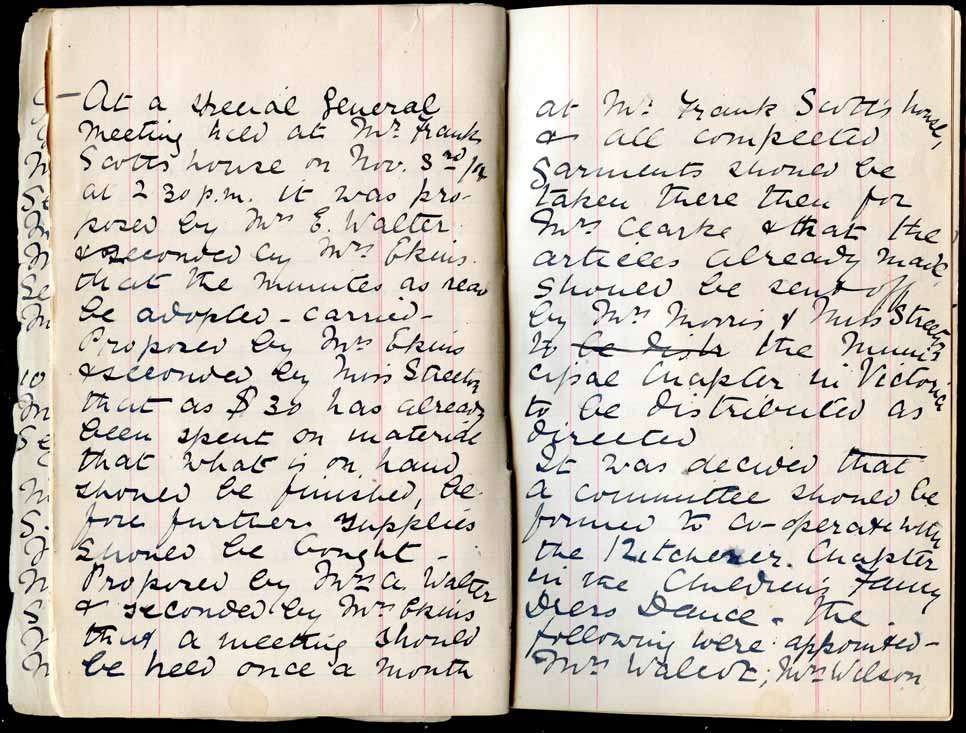 At a special General
meeting held at Mrs Frank
Scotts house on Nov. 3rd
at 2 30 p.m. it was pro-
posed by Mrs E. Walter
& seconded by Mrs Ekins
that the minutes as read
be adopted - carried -
Proposed by Mrs Ekins
& seconded by Miss Streeten
that as $30 has already
been spent on material
that what is on hand
should be finished, be-
fore further supplies
should be bought -
Proposed by Mrs A. Walter
& seconded by Mrs Ekins
that a meeting should
be held once a month
at Mrs Frank Scotts house,
& all completed
garments should be
taken there then for
Mrs Clarke & that the
articles already made
should be sent off
by Mrs Morris & Miss Streeten
to be distr the Muni
cipal Chapter in Victoria
to be distributed as
directed
It was decided that
a committee should be
formed to co-operate with
the Kitchener Chapter
in the Children's Fancy
Dress Dance - The
following were appointed -
Mrs Walcot; Mrs Wilson